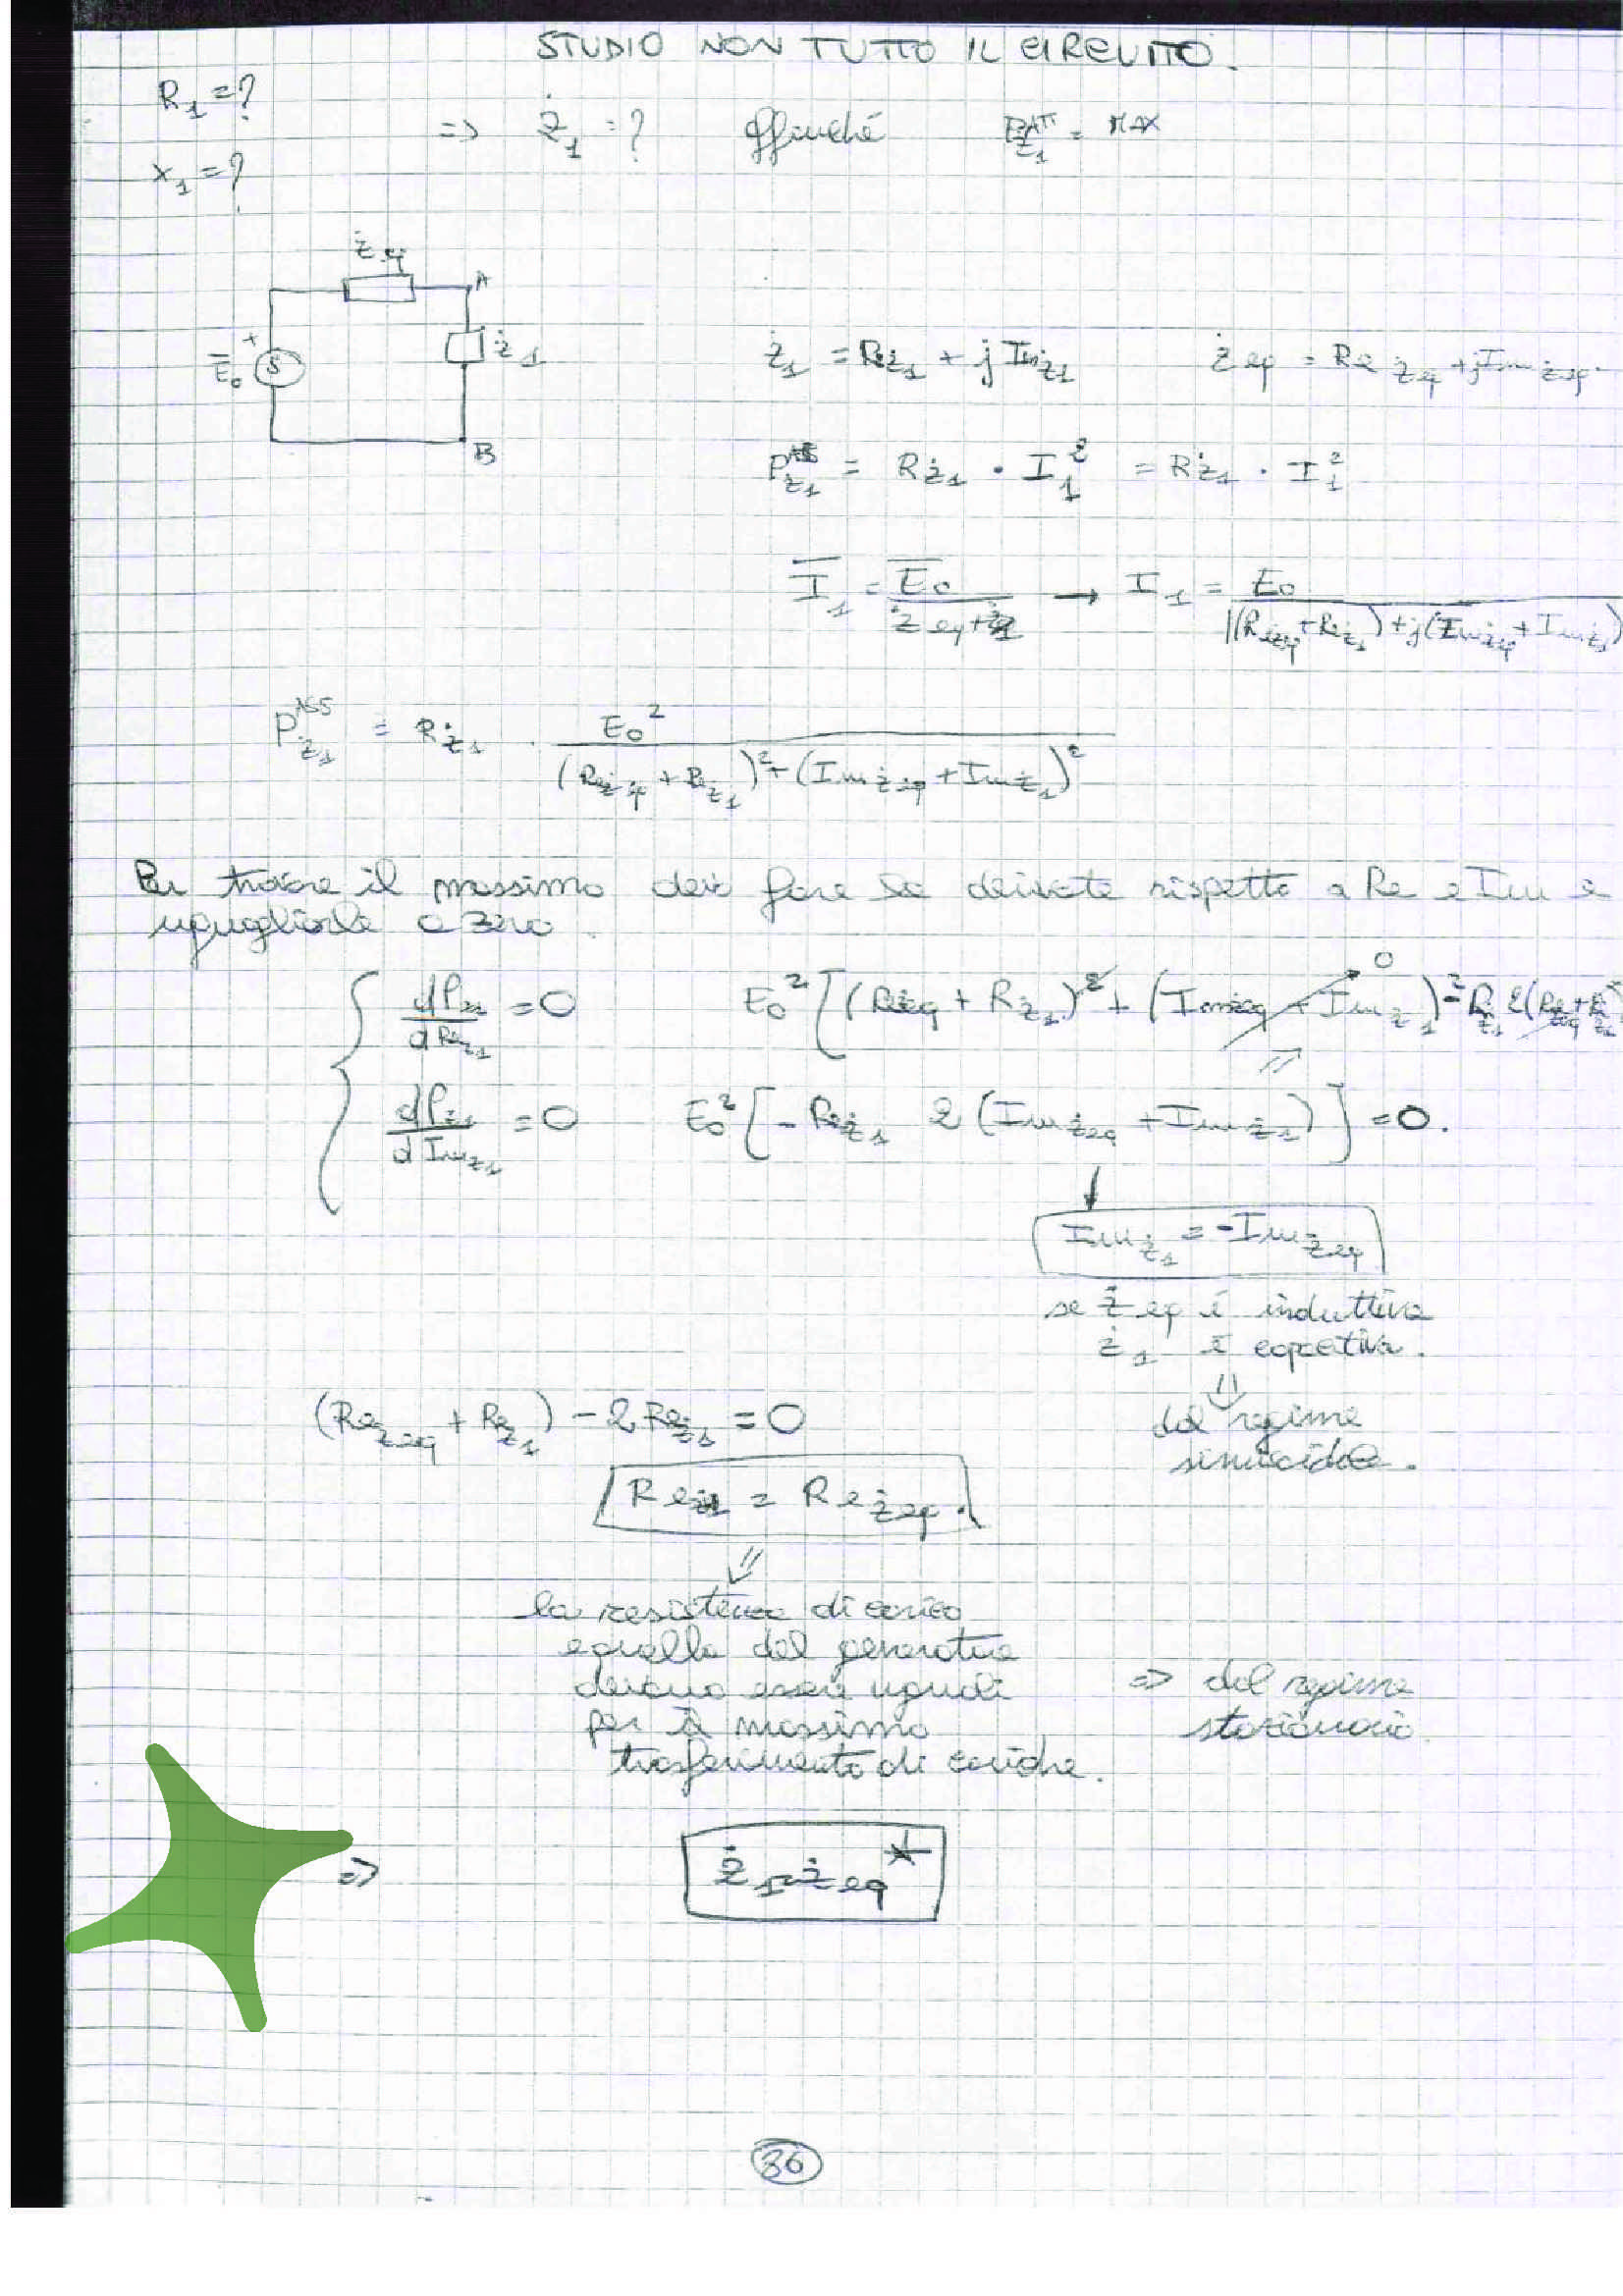 STUDIO NON TUTTO IL CIRCUITO.
R₁ = ?
=> Ż₁ = ? affinché P_Ż₁^ATT = MAX
X₁ = ?
Ż eq
A
Ē₀ + S Ż₁
B
Ż₁ = Re_Ż₁ + j Im_Ż₁ Ż eq = Re_Ż eq + j Im_Ż eq.
P_Ż₁^ASS = R_Ż₁ · I₁² = R_Ż₁ · I₁²
Ī₁ = Ē₀ / (Ż eq + Ż₁) → I₁ = E₀ / |(Re_Żeq + Re_Ż₁) + j(Im_Żeq + Im_Ż₁)
P_Ż₁^ASS = R_Ż₁ · E₀² / ((Re_Żeq + Re_Ż₁)² + (Im_Żeq + Im_Ż₁)²)
Per trovare il massimo devo fare le derivate rispetto a Re e Im e
uguagliarle a zero.
dP_Ż₁ / dRe_Ż₁ = 0 E₀² [(Re_Żeq + R_Ż₁)² + (Im_Żeq + Im_Ż₁)² - R_Ż₁ 2(Re_Żeq + R_Ż₁ 0
dP_Ż₁ / dIm_Ż₁ = 0 E₀² [- Re_Ż₁ 2 (Im_Żeq + Im_Ż₁)] = 0.
Im_Ż₁ = - Im_Żeq
se Ż eq è induttiva
Ż₁ è capacitiva.
dal regime
sinusoidale.
(Re_Żeq + Re_Ż₁) - 2 Re_Ż₁ = 0
Re_Ż₁ = Re_Żeq.
la resistenza di carico
e quella del generatore
devono essere uguali
per il massimo
trasferimento di cariche.
=> dal regime
stazionario.
=> Ż₁ = Ż eq*
36